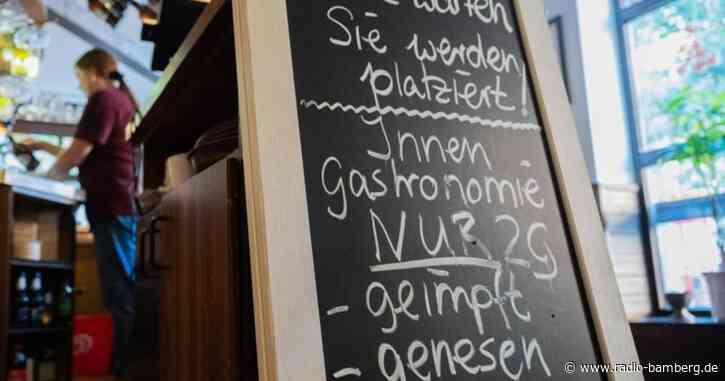 warten
Sie werden
platziert!
Innen
gastronomie
NUR 2G
- geimpft
- genesen
© www.radio-bamberg.de